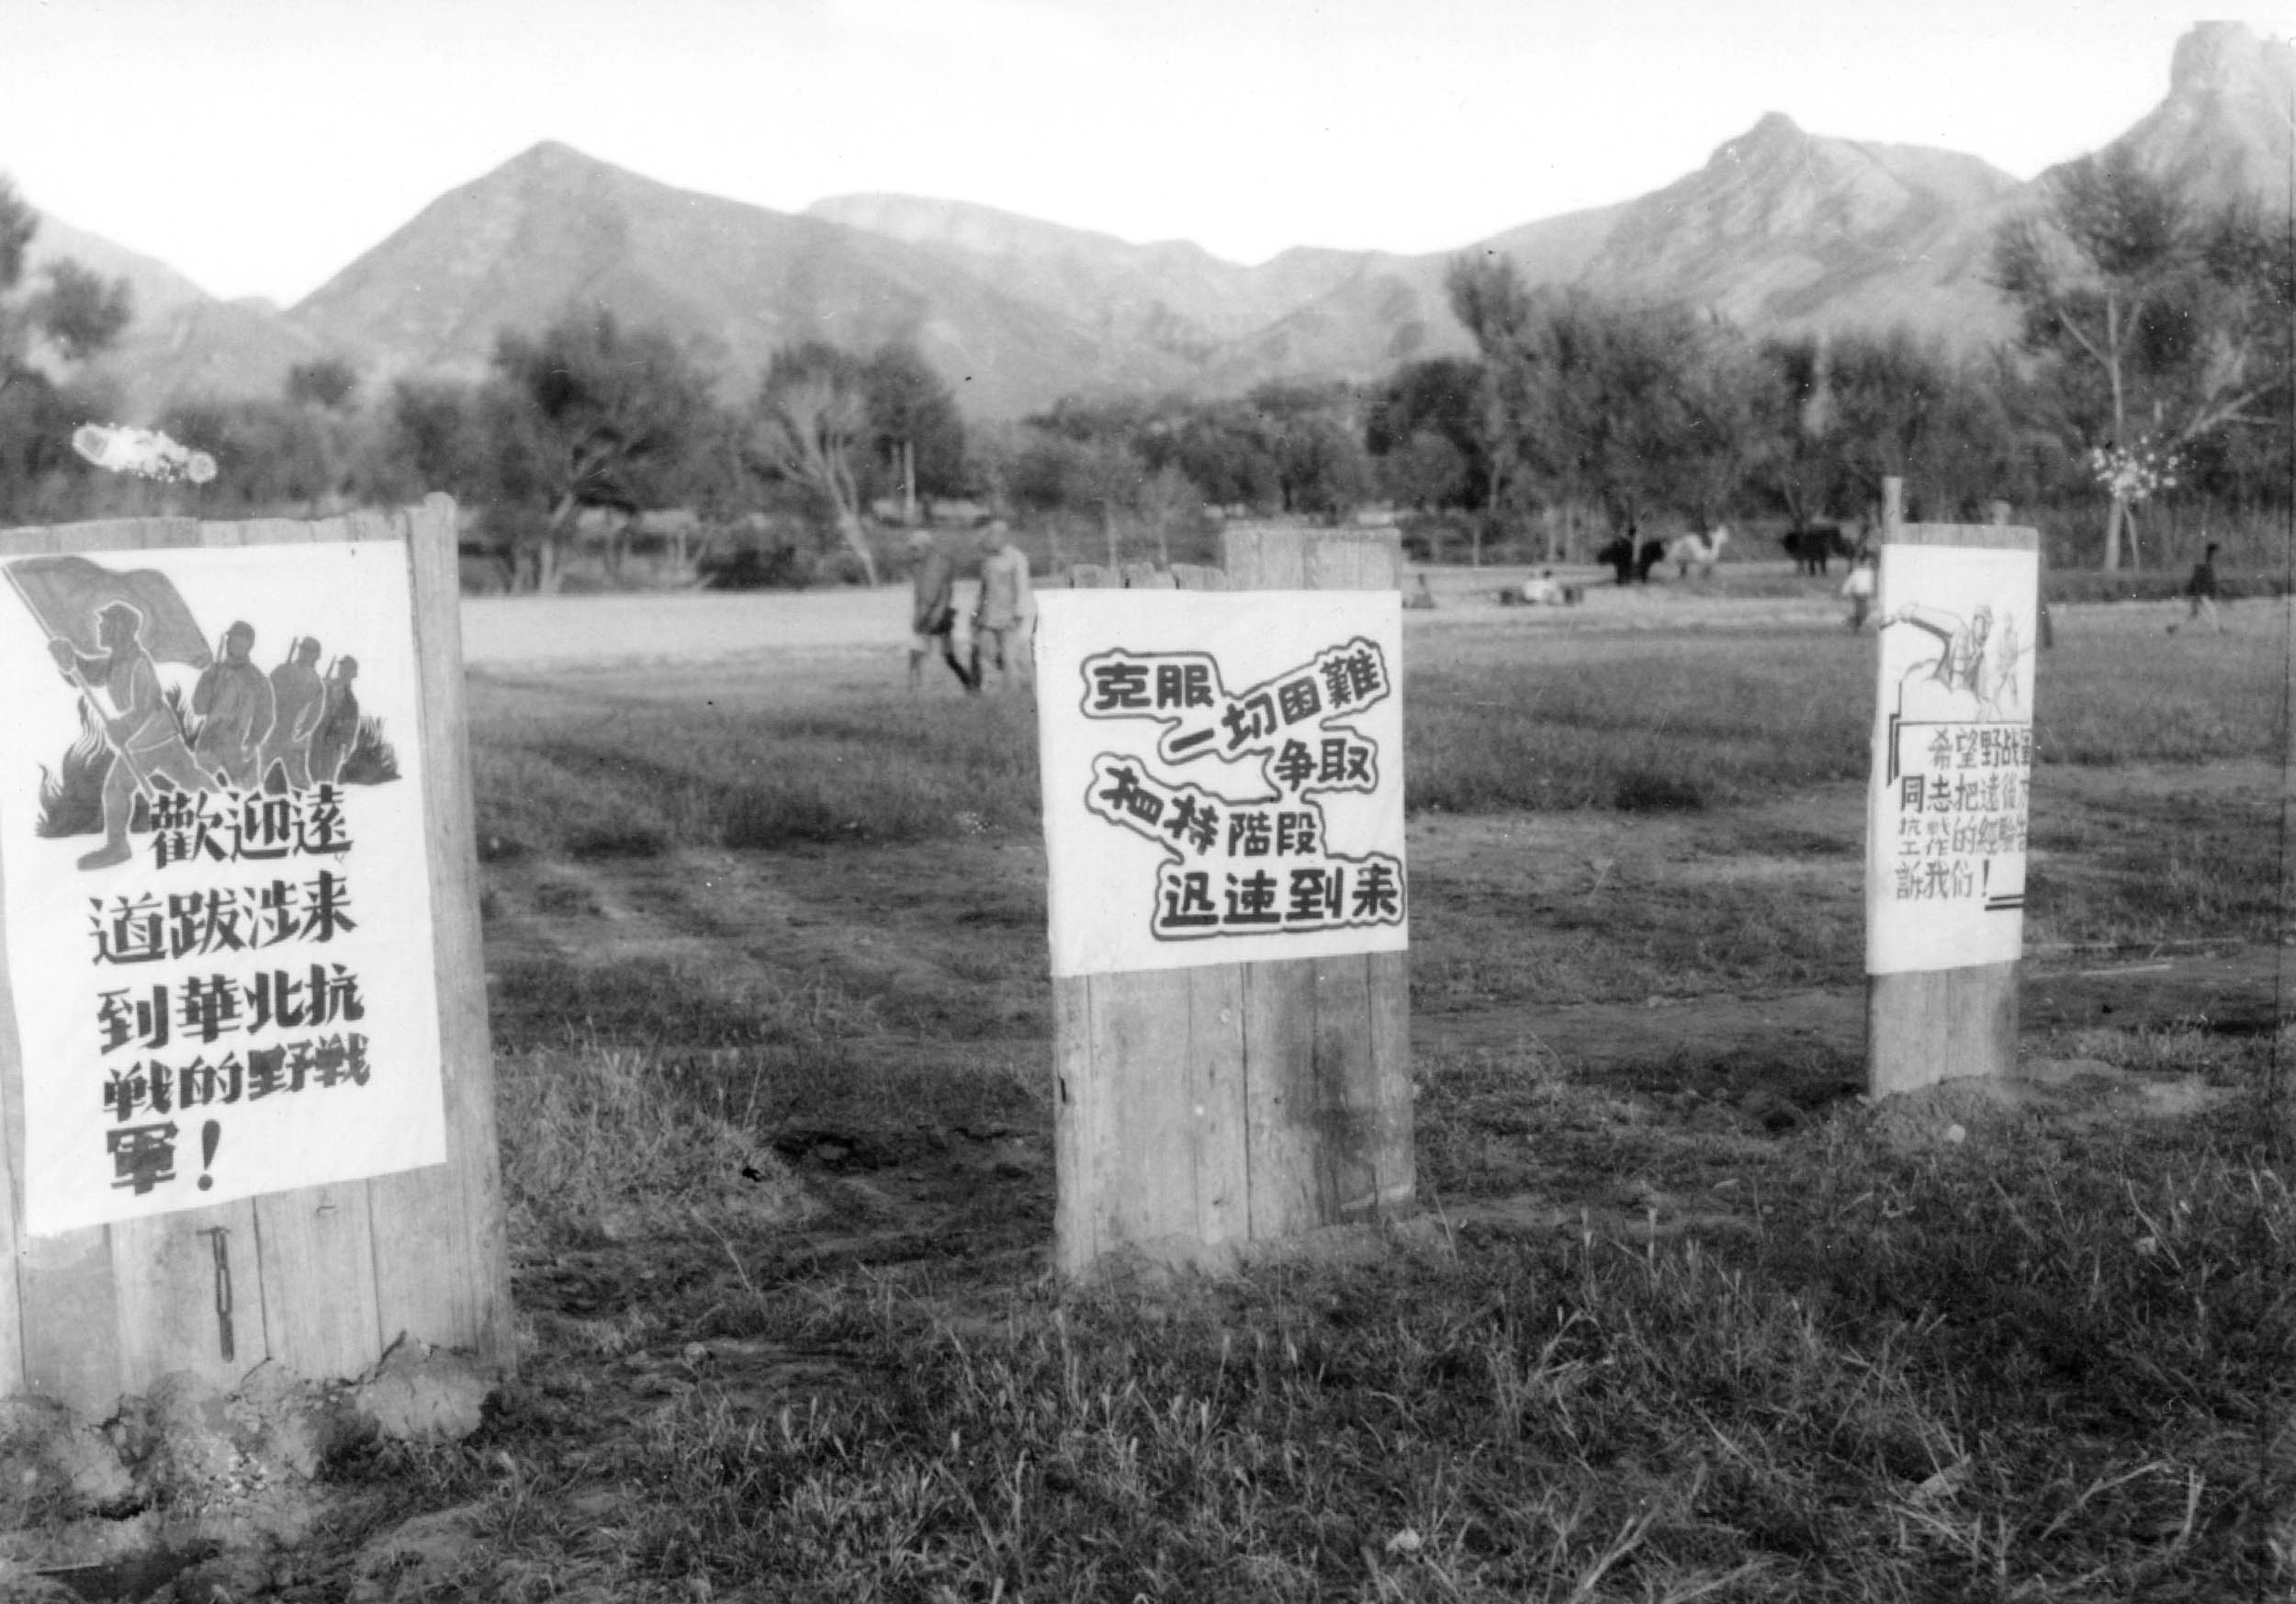 歡迎遠
道跋涉来
到華北抗
戰的野戰
軍！
克服
一切困難
争取
相持階段
迅速到来
希望野战軍
同志把遠後方
抗战的經驗告
訴我們！